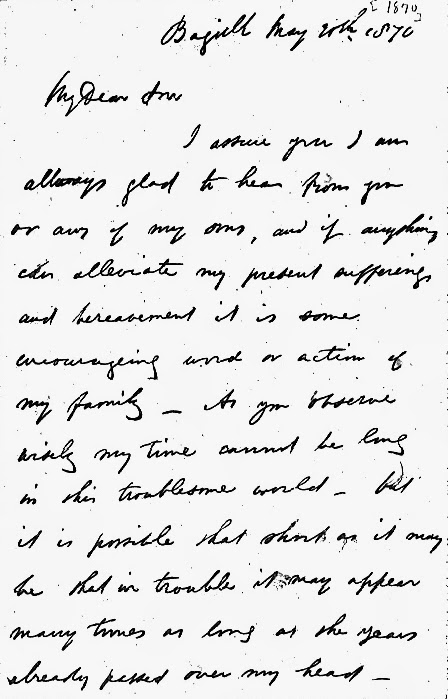 [1870]
Bagillt May 20th 1870
My Dear Son
I assure you I am
allways glad to hear from you
or any of my sons, and if anything
can alleviate my present sufferings
and bereavement it is some
encourageing word or action of
my family _ As you observe
wisely my time cannot be long
in this troublesome world _ but
it is possible that short as it may
be that in trouble it may appear
many times as long as the years
already passed over my head _